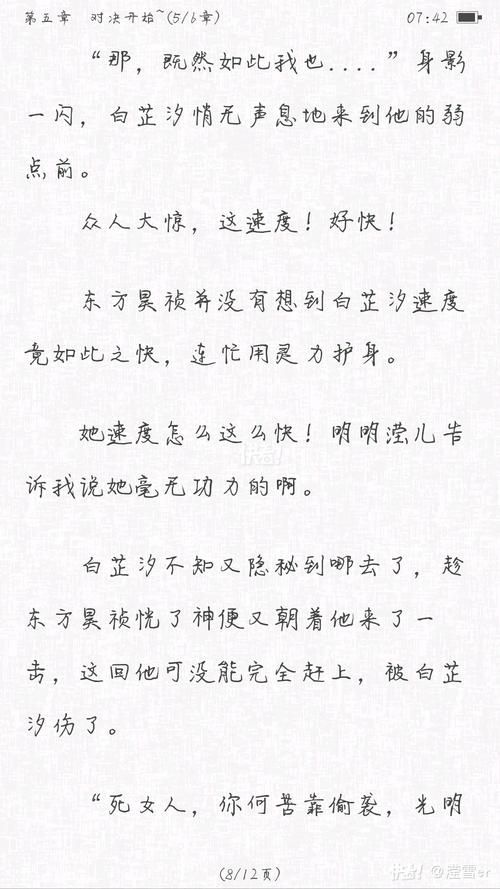 第五章 对决开始~(5/6章) 07:42
“那，既然如此我也....”身影
一闪，白芷汐悄无声息地来到他的弱
点前。
众人大惊，这速度！好快！
东方昊祯并没有想到白芷汐速度
竟如此之快，连忙用灵力护身。
她速度怎么这么快！明明滢儿告
诉我说她毫无功力的啊。
白芷汐不知又隐秘到哪去了，趁
东方昊祯恍了神便又朝着他来了一
击，这回他可没能完全赶上，被白芷
汐伤了。
“死女人，你何苦靠偷袭，光明
(8/12页)
快看! @滢雪er